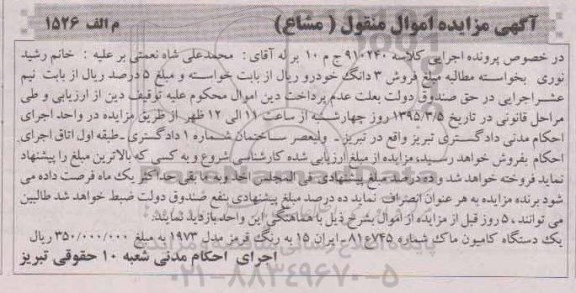 آگهی مزایده اموال منقول ( مشاع) م الف ۱۵۲۶
در خصوص پرونده اجرایی کلاسه ۹۱۰۲۴۰ ج م ۱۰ بر له آقای : محمدعلی شاه نعمتی بر علیه : خانم رشید
نوری بخواسته مطالبه مبلغ فروش ۳ دانگ خودرو ریال از بابت خواسته و مبلغ ۵ درصد ریال از بابت نیم
عشر اجرایی در حق صندوق دولت بعلت عدم پرداخت دین اموال محکوم علیه توقیف دین از ارزیابی و طی
مراحل قانونی در تاریخ ۱۳۹۵/۳/۵ روز چهارشنبه از ساعت ۱۱ الی ۱۲ ظهر از طریق مزایده در واحد اجرای
احکام مدنی دادگستری تبریز واقع در تبریز - ولیعصر ساختمان شماره ۱ دادگستری -طبقه اول اتاق اجرای
احکام بفروش خواهد رسید مزایده از مبلغ ارزیابی شده کارشناسی شروع و به کسی که بالاترین مبلغ را پیشنهاد
نماید فروخته خواهد شد و ده درصد مبلغ پیشنهادی فی المجلس اخذ و به مابقی حداکثر یک ماه فرصت داده می
شود برنده مزایده به هر عنوان انصراف نماید ده درصد مبلغ پیشنهادی بنفع صندوق دولت ضبط خواهد شد طالبین
می توانند ۵۰ روز قبل از مزایده از اموال بشرح ذیل با هماهنگی این واحد بازدید نمایند.
یک دستگاه کامیون ماک شماره ۷۴۵ع۸۱-ایران ۱۵ به رنگ قرمز مدل ۱۹۷۳ به مبلغ ۳۵۰/۰۰۰/۰۰۰ ریال
اجرای احکام مدنی شعبه ۱۰ حقوقی تبریز
۰۲۱-۸۸۳۴۹۶۷۰-۵